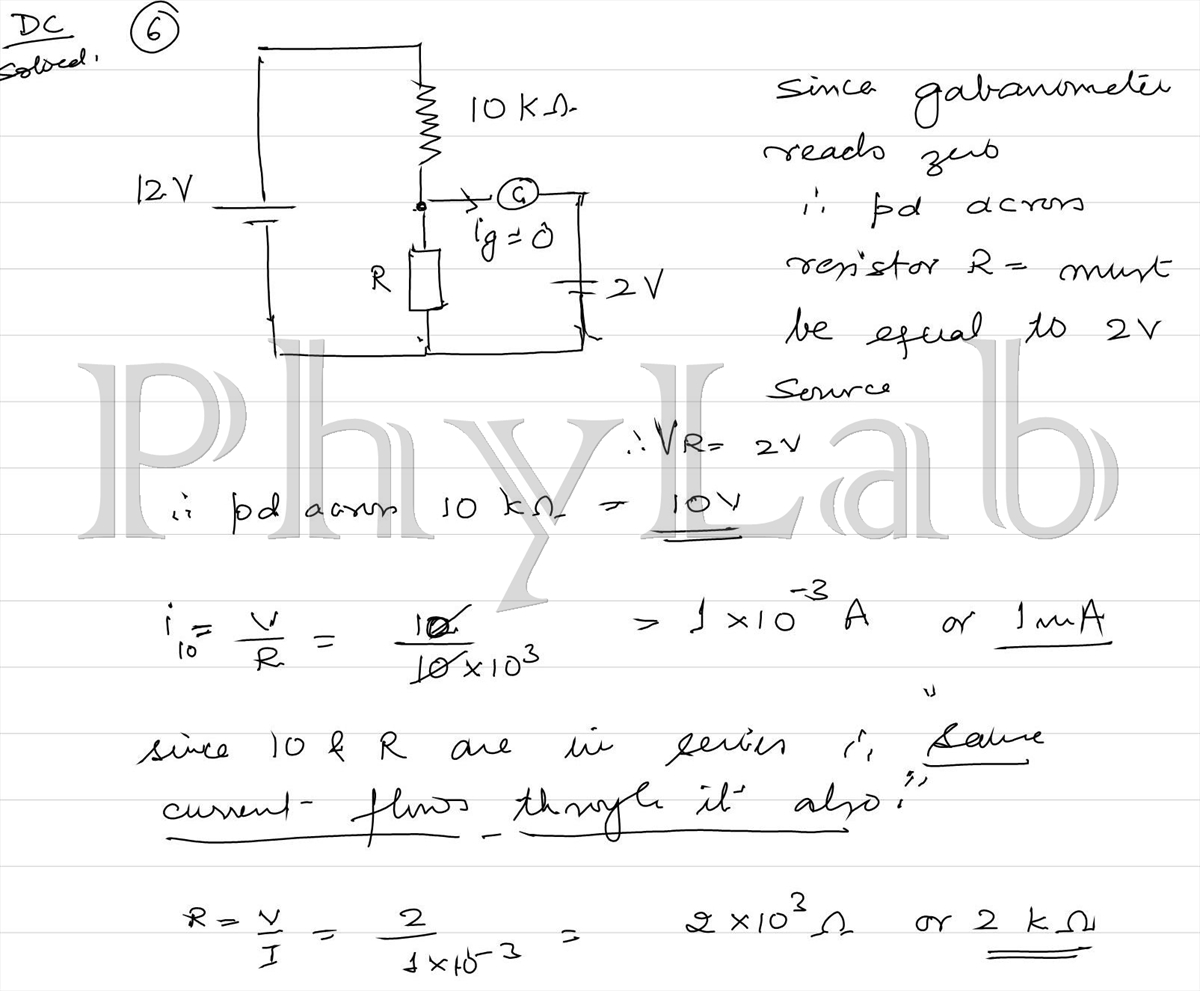 DC
Solved.
6
10 KΩ
12V
G
ig = 0
R
2V
since galvanometer
reads zero
∴ pd across
resistor R = must
be equal to 2V
Source
∴ VR = 2V
∴ pd across 10 kΩ = 10V
i10 = V/R = 10/10×10³ = 1×10⁻³ A or 1mA
since 10 & R are in series ∴ "same
current flows through it also"
R = V/I = 2/1×10⁻³ = 2×10³ Ω or 2 kΩ
PhyLab